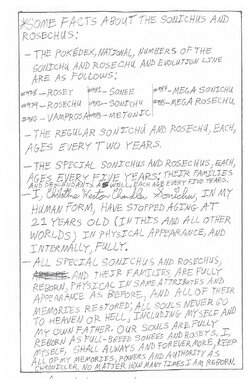 *SOME FACTS ABOUT THE SONICHUS AND
ROSECHUS:
- THE POKÉDEX, NATIONAL, NUMBERS OF THE
SONICHU AND ROSECHU AND EVOLUTION LINE
ARE AS FOLLOWS:
- ROSEY - SONEE - MEGA SONICHU
- ROSECHU - SONICHU - MEGA ROSECHU
- VAMPROSA - METONIC
- THE REGULAR SONICHU AND ROSECHU, EACH,
AGES EVERY TWO YEARS.
- THE SPECIAL SONICHUS AND ROSECHUS, EACH,
AGES EVERY FIVE YEARS. THEIR FAMILIES
AND DESCENDANTS AS WELL, EACH AGE EVERY FIVE YEARS.
- I, Christine Weston Chandler Sonichu, IN MY
HUMAN FORM, HAVE STOPPED AGING AT
21 YEARS OLD (IN THIS AND ALL OTHER
WORLDS) IN PHYSICAL APPEARANCE, AND
INTERNALLY, FULLY.
- ALL SPECIAL SONICHUS AND ROSECHUS,
AND THEIR FAMILIES ARE FULLY
REBORN, PHYSICAL IN SAME ATTRIBUTES AND
APPEARANCE AS BEFORE, AND ALL OF THEIR
MEMORIES RESTORED. ALL SOULS NEVER GO
TO HEAVEN OR HELL, INCLUDING MYSELF AND
MY OWN FATHER. OUR SOULS ARE FULLY
REBORN AS FULL-BREED SONEES AND ROSEYS. I,
MYSELF, SHALL ALWAYS AND FOREVERMORE, KEEP
ALL OF MY MEMORIES, POWERS AND AUTHORITY AS
CHRONICLER, NO MATTER HOW MANY TIMES I AM REBORN.